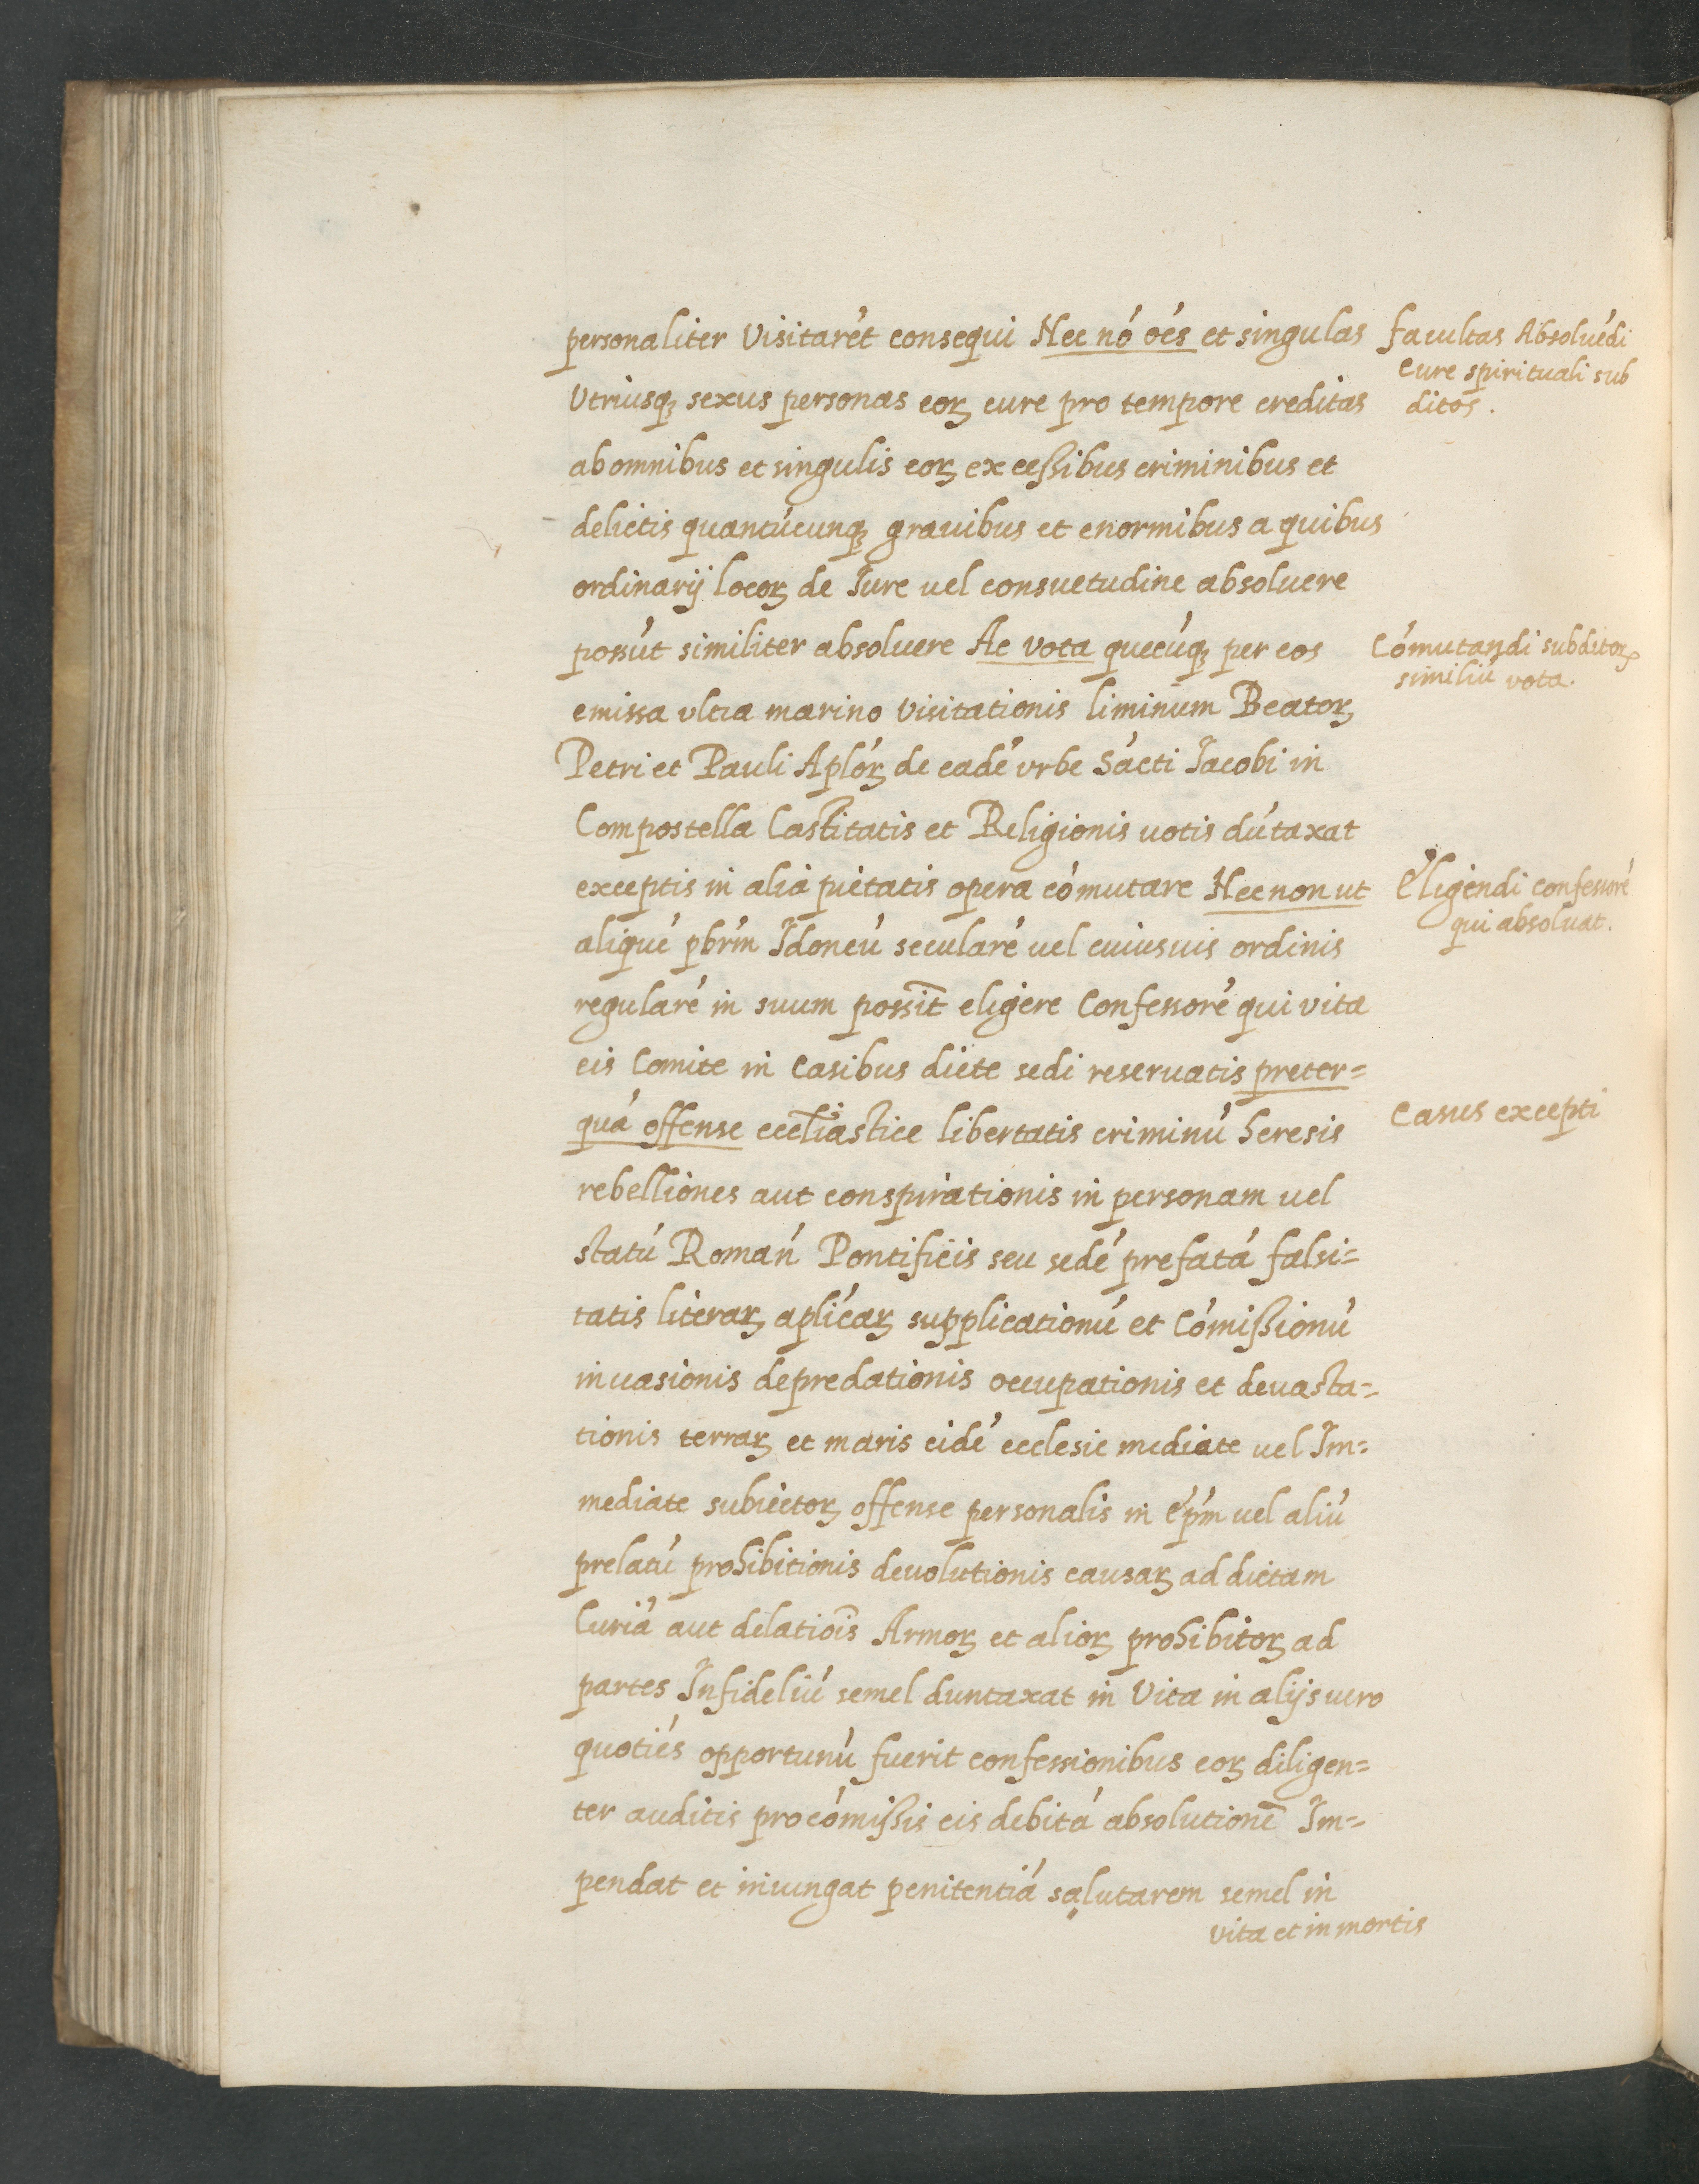 personaliter Visitarét consequi Nec nó oés et singulas
Utriusqꝫ sexus personas eoꝝ cure pro tempore creditas
ab omnibus et singulis eoꝝ excessibus criminibus et
delictis quantúcunqꝫ grauibus et enormibus a quibus
ordinarij locoꝝ de Iure uel consuetudine absoluere
possút similiter absoluere Ac vota quecúqꝫ per eos
emissa vltra marino visitationis liminum Beatoꝝ
Petri et Pauli Aplóꝝ de eadé vrbe Sácti Iacobi in
Compostella Castitatis et Religionis uotis dútaxat
exceptis in alia pietatis opera cómutare Nec non ut
aliqué pbrm Idoneú secularé uel cuiusuis ordinis
regularé in suum possīt eligere Confessoré qui vita
eis Comite in Casibus dicte sedi reseruatis preter=
quá offense eccl̄iastice libertatis criminú heresis
rebelliones aut conspirationis in personam uel
statú Román Pontificis seu sedé prefatá falsi=
tatis literaꝝ aplicáꝝ supplicationú et Cómissionú
inuasionis depredationis occupationis et deuasta=
tionis terraꝝ et maris eidé ecclesie mediate uel Im=
mediate subiectoꝝ offense personalis in épm uel aliú
prelatú prohibitionis deuolutionis causaꝝ ad dictam
Curiá aut delatiōis Armoꝝ et alioꝝ prohibitoꝝ ad
partes Infideliú semel duntaxat in Vita in alijs uero
quotiés opportunú fuerit confessionibus eoꝝ diligen=
ter auditis pro cómissis eis debitá absolutionē Im=
pendat et iniungat penitentiá salutarem semel in
vita et in mortis
facultas Absoluédi
cure spirituali sub
ditos.
Cómutandi subditoꝝ
similiú vota.
Eligendi confessoré
qui absoluat.
Casus excepti